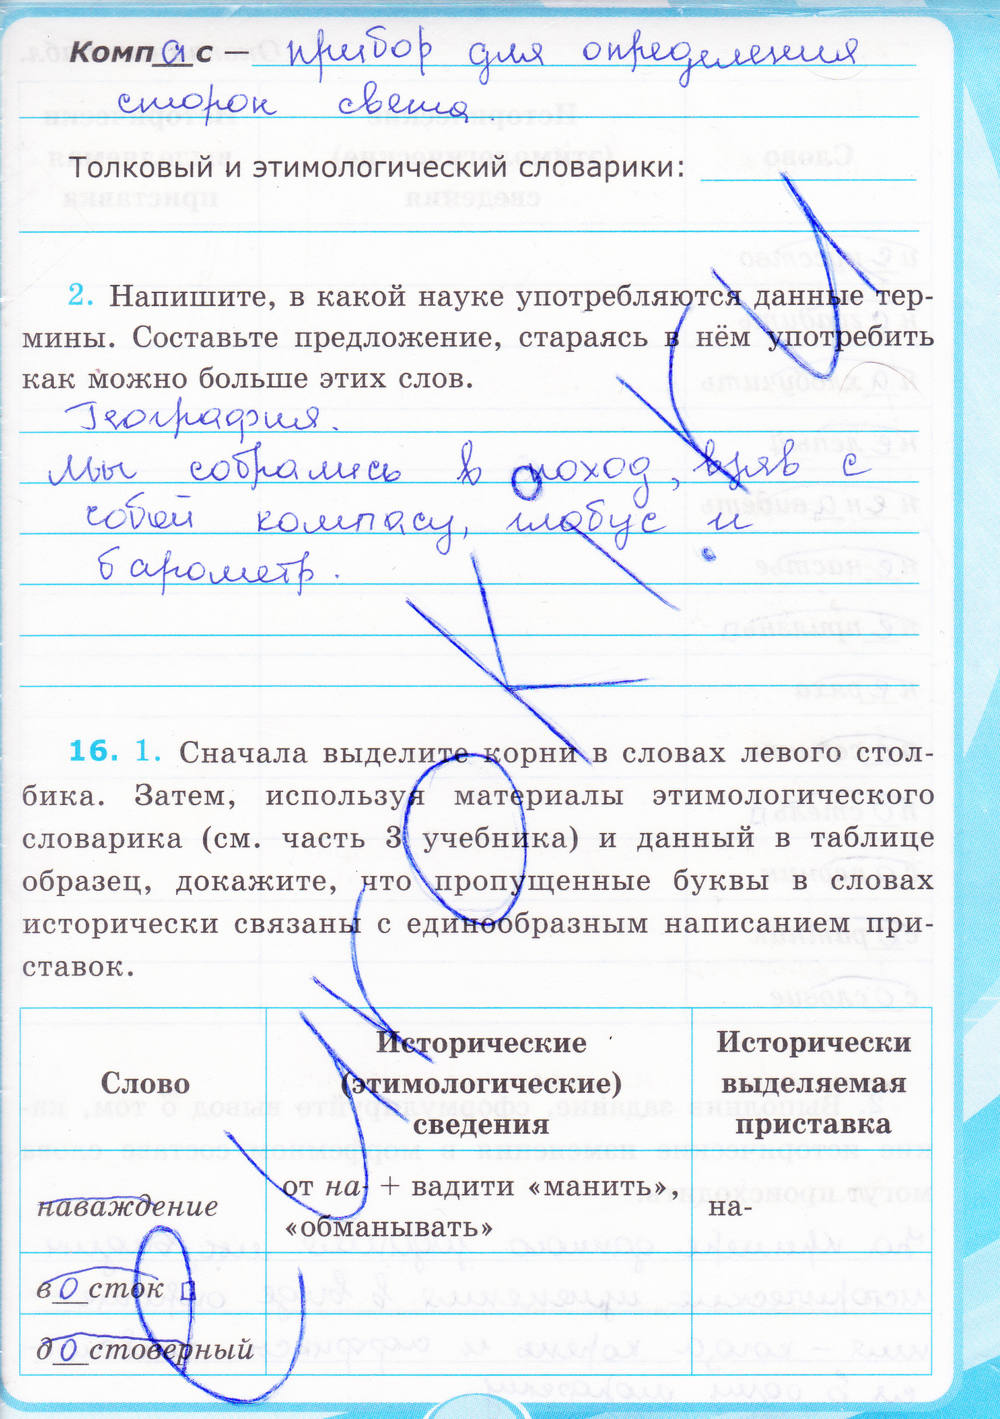 Комп а с — прибор для определения
сторон света.
Толковый и этимологический словарики:
2. Напишите, в какой науке употребляются данные тер-
мины. Составьте предложение, стараясь в нём употребить
как можно больше этих слов.
География.
Мы собрались в поход, взяв с
собой компасу, глобус и
барометр.
16. 1. Сначала выделите корни в словах левого стол-
бика. Затем, используя материалы этимологического
словарика (см. часть 3 учебника) и данный в таблице
образец, докажите, что пропущенные буквы в словах
исторически связаны с единообразным написанием при-
ставок.
Слово
Исторические
(этимологические)
сведения
Исторически
выделяемая
приставка
наваждение
от на- + вадити «манить»,
«обманывать»
на-
в о сток
д о стоверный